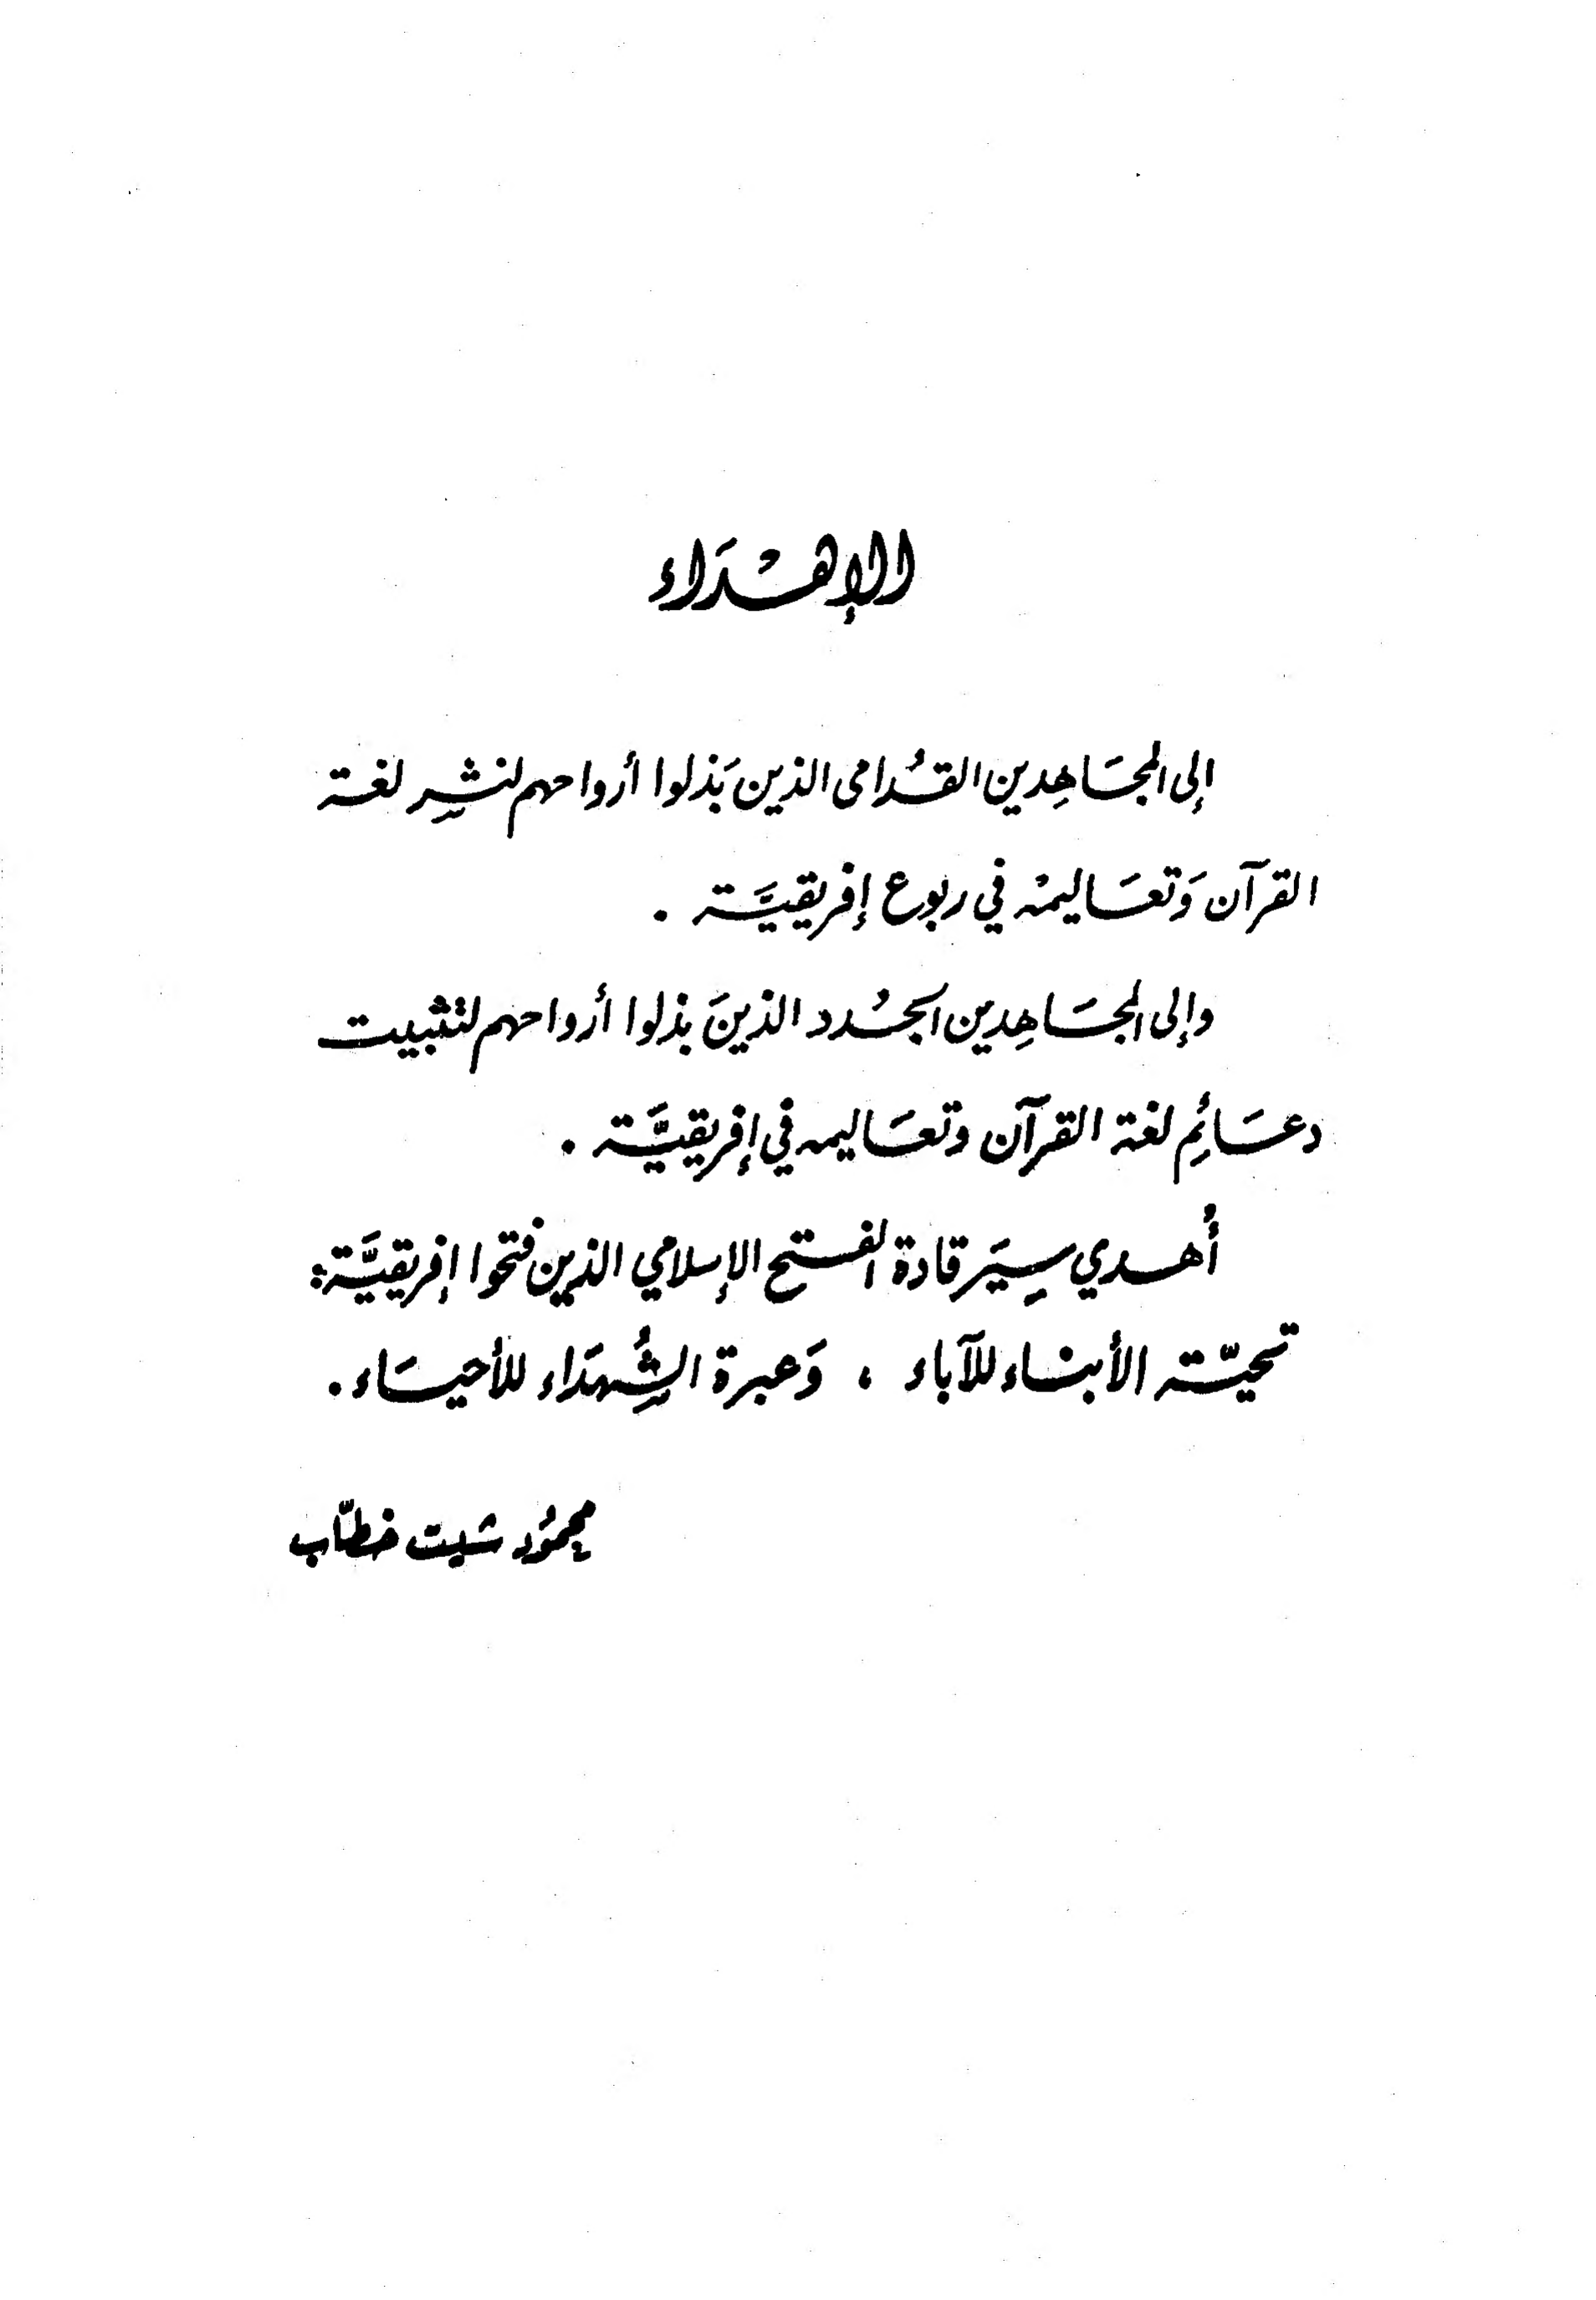 الإهْدَاء
إلى المجَاهِدين القُدامى الذين بَذلوا أرواحهم لنشرِ لغة
القرآن وَتعَاليمهْ في ربوع إفريقيَّة .
وإلى المجَاهِدين الجُدد الذينَ بذلوا أرواحهم لتثبيت
دعَائِم لغة القرآن وتعَاليمه في إفريقيَّة .
أُهدي سِيَر قادة الفتح الإسلامي الذين فتحوا إفريقيَّة :
تحيّة الأبناء للآباء ، وَعبرة الشُهدَاء للأحيَاء .
محمُود شيت خطّاب